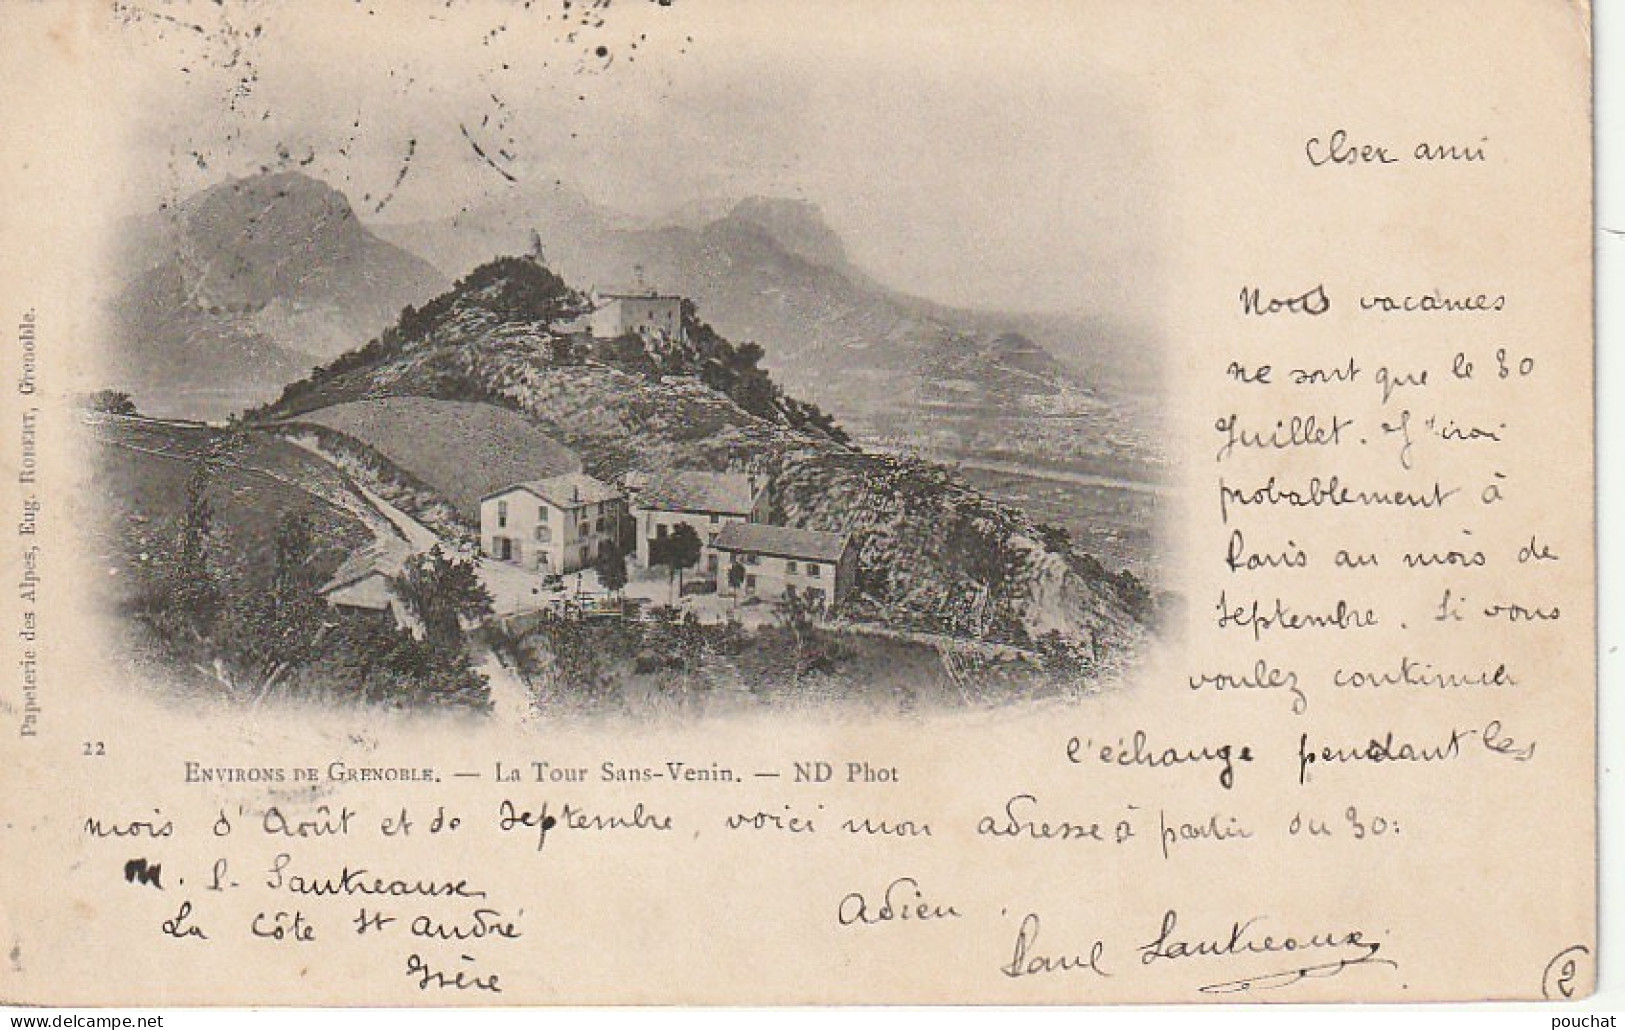 Cher ami
Nous vacances
ne sont que le 30
Juillet. J'irai
probablement à
Paris au mois de
Septembre. Si vous
voulez continuer
l'échange pendant les
mois d'Août et de Septembre, voici mon adresse à partir du 30:
M. P. Sautreaux
La Côte St André
Isère
Adieu.
Paul Sautreaux
2
22
ENVIRONS DE GRENOBLE. — La Tour Sans-Venin. — ND Phot
Papeterie des Alpes, Eug. ROBERT, Grenoble.
pouchat